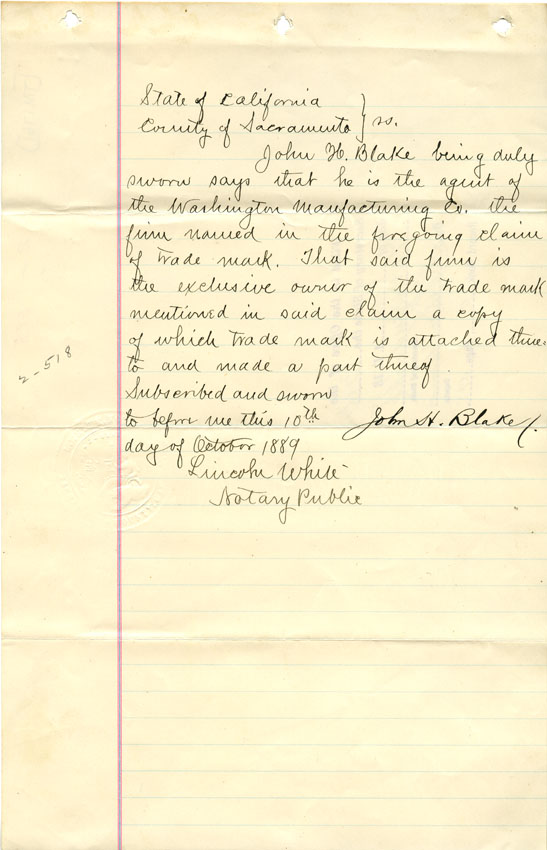 State of California
County of Sacramento } ss.
John H. Blake being duly
sworn says that he is the agent of
the Washington Manufacturing Co. the
firm named in the foregoing claim
of trade mark. That said firm is
the exclusive owner of the trade mark
mentioned in said claim a copy
of which trade mark is attached there-
to and made a part thereof
2-518
Subscribed and sworn
to before me this 10th
John H. Blake
day of October 1889
Lincoln White
Notary Public